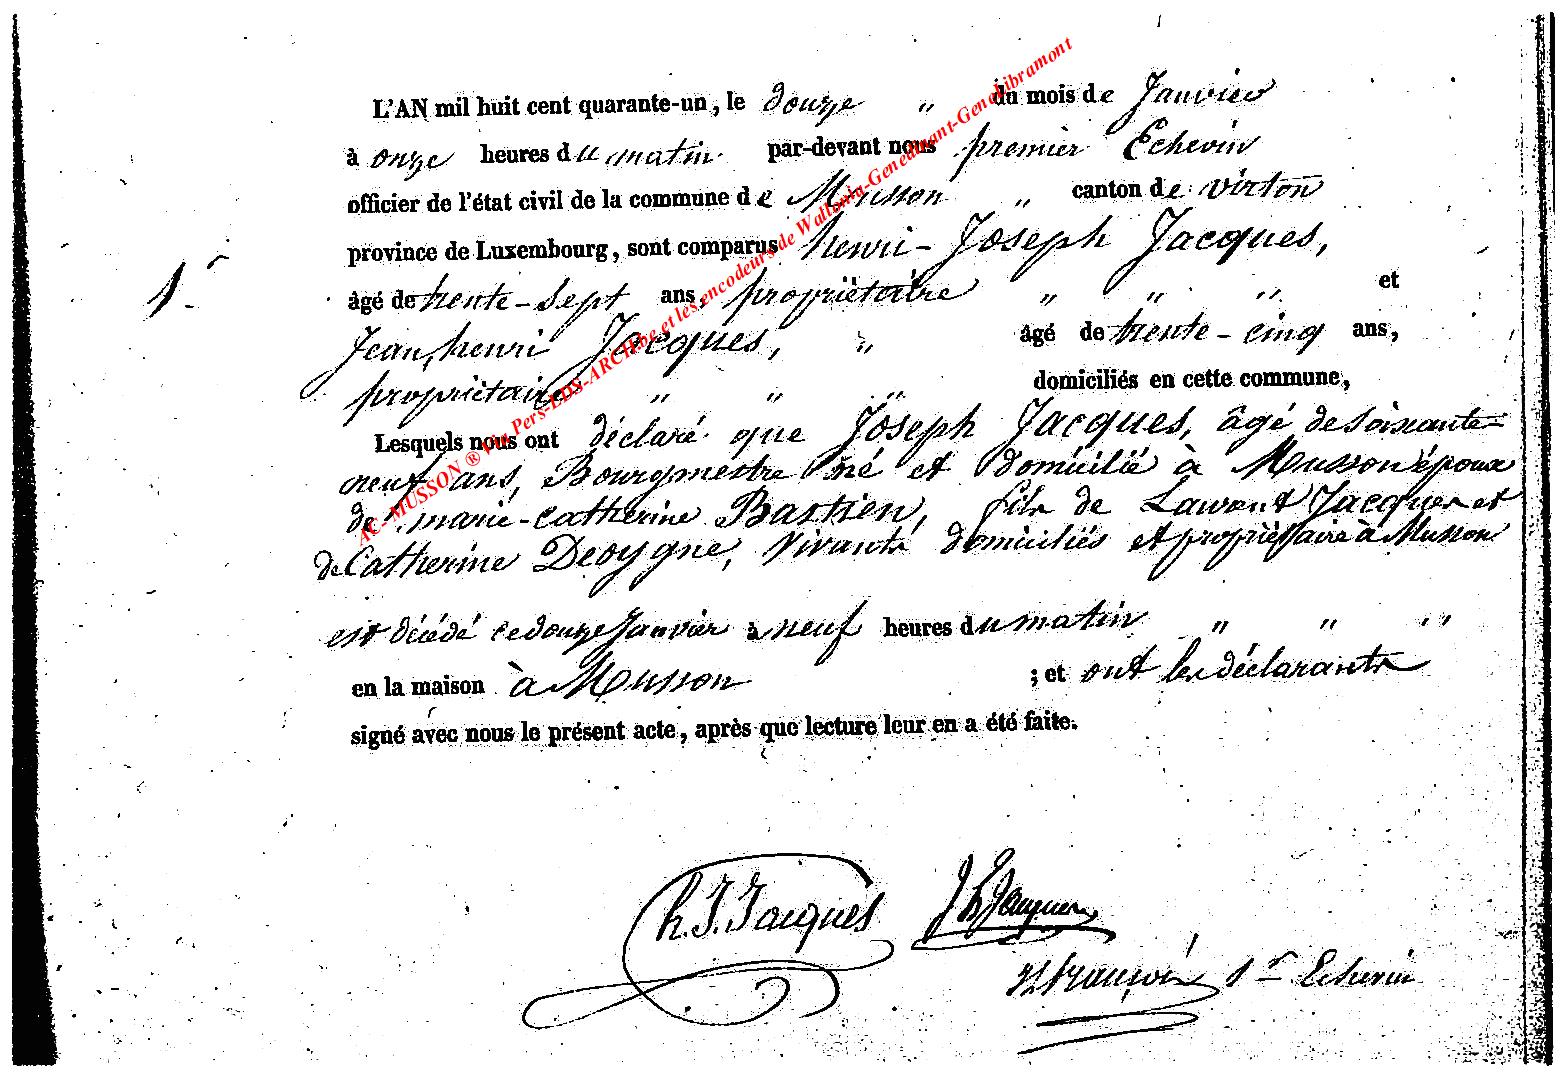 L'AN mil huit cent quarante-un, le douze " du mois de Janvier
à onze heures du matin par-devant nous premier Echevin
officier de l'état civil de la commune de Musson " canton de virton
province de Luxembourg, sont comparus henri-Joseph Jacques,
1r
âgé de trente-sept ans, propriétaire " " " et
Jean, henri Jacques, " âgé de trente-cinq ans,
propriétaire " " " domiciliés en cette commune,
Lesquels nous ont déclaré que Joseph Jacques, âgé de soixante-
neuf ans, Bourgmestre né et domicilié à Musson époux
de marie-catherine Bastien, fils de Laurent Jacques et
de Catherine Deoygne, vivants domiciliés et propriétaire à Musson
est décédé ce douze Janvier à neuf heures du matin " " "
en la maison à Musson ; et ont les déclarants
signé avec nous le présent acte, après que lecture leur en a été faite.
h. J. Jacques J h Jacques
françois 1er Echevin
AC-MUSSON ® du Pers-LDS-ARCH.be et les encodeurs de Wallonia-Genedinant-Genealibramont